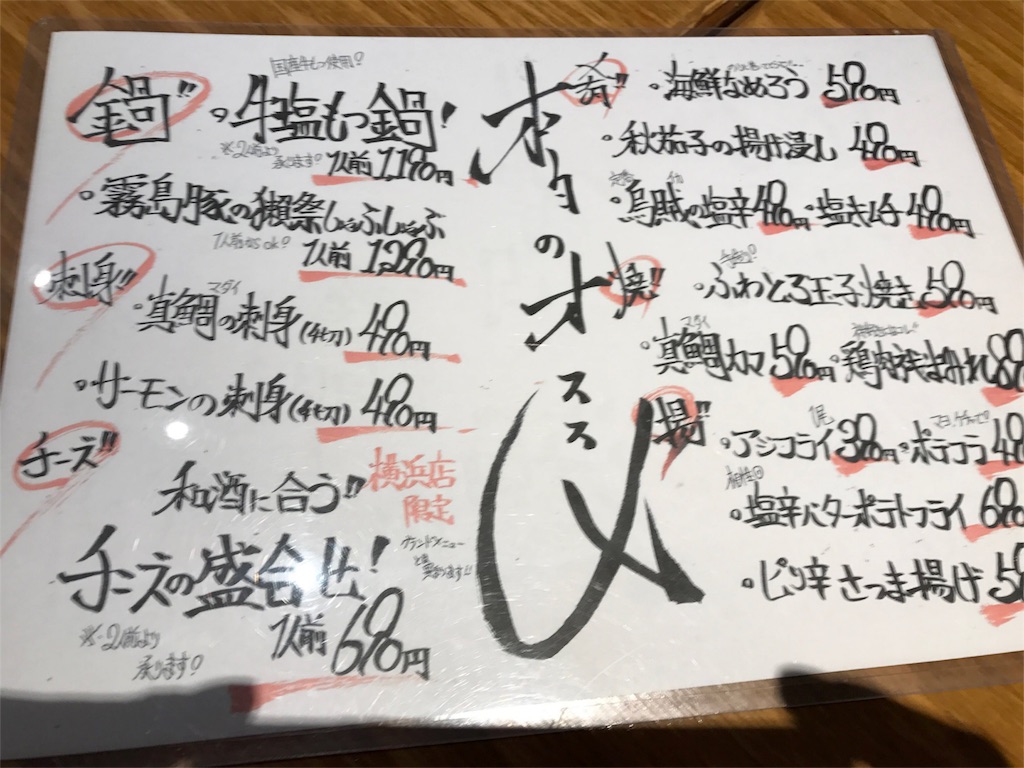 鍋!!
国産牛もつ使用!
・牛塩もつ鍋!
※2人前より
承ります! 1人前 1,190円
・霧島豚の獺祭しゃぶしゃぶ
1人前からok! 1人前 1,290円
刺身!!
マダイ
・真鯛の刺身(4切) 490円
・サーモンの刺身(4切) 490円
チーズ!!
和酒に合う!! 横浜店
限定
チーズの盛合せ!
グランドメニュー
と異なります!!
※2人前より
承ります! 1人前 690円
オススメ
肴!!
・海鮮なめろう 590円
・秋茄子の揚げ浸し 490円
定番 イカ
・烏賊の塩辛 490円 ・塩キムチ 490円
焼!!
・ふわとろ玉子焼き 590円
マダイ
・真鯛カマ 590円 ・鶏肉
揚!!
1尾 マヨ、ケチャップ!
・アジフライ 390円 ・ポテフラ
相性◎
・塩辛バターポテトフライ
・ピリ辛さつま揚げ